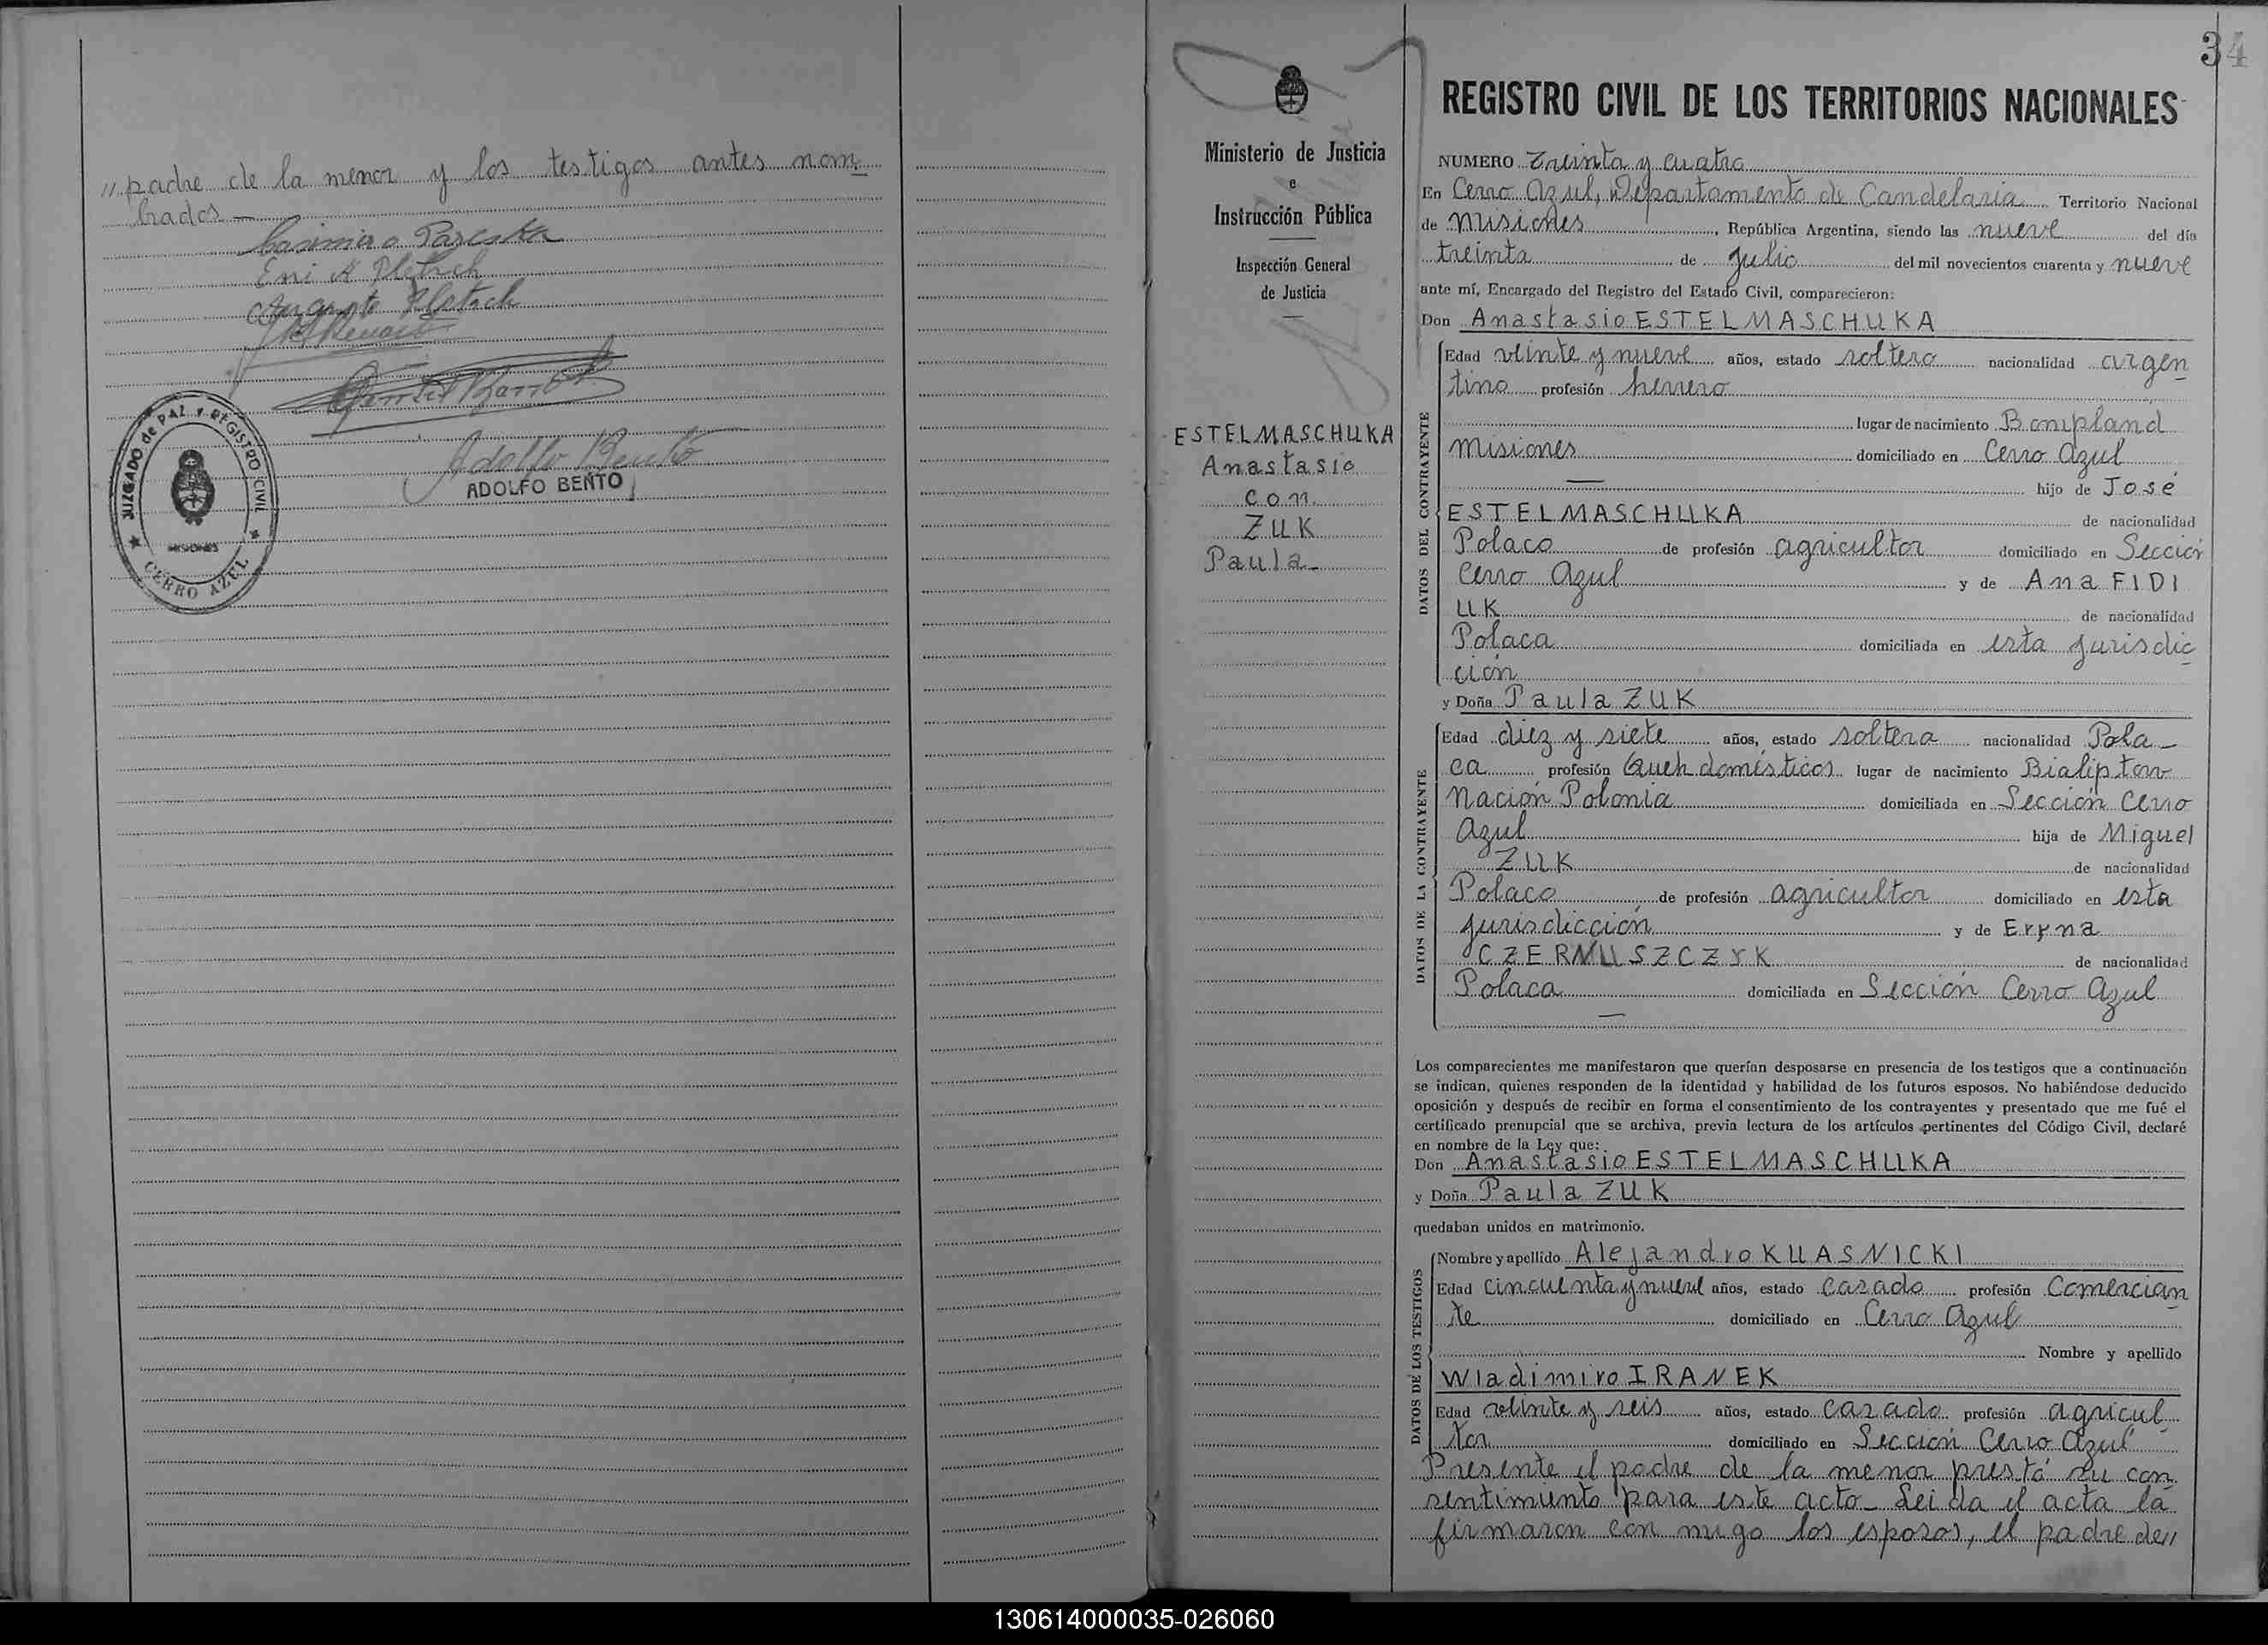 „padre de la menor y los testigos antes nom
brados—
Casimiro
Eni A Pletsch
Augusto Pletsch
Adolfo Bento
ADOLFO BENTO
JUZGADO de PAZ y REGISTRO CIVIL
MISIONES
CERRO AZUL
34
Ministerio de Justicia
e
Instrucción Pública
Inspección General
de Justicia
ESTELMASCHUKA
Anastasio
con
ZUK
Paula-
REGISTRO CIVIL DE LOS TERRITORIOS NACIONALES
NUMERO Treinta y cuatro
En Cerro Azul, Departamento de Candelaria Territorio Nacional
de Misiones, República Argentina, siendo las nueve del día
treinta de Julio del mil novecientos cuarenta y nueve
ante mí, Encargado del Registro del Estado Civil, comparecieron:
Don Anastasio ESTELMASCHUKA
DATOS DEL CONTRAYENTE
Edad veinte y nueve años, estado soltero nacionalidad argen
tino profesión herrero
lugar de nacimiento Bonpland
Misiones domiciliado en Cerro Azul
— hijo de José
ESTELMASCHUKA de nacionalidad
Polaco de profesión agricultor domiciliado en Sección
Cerro Azul y de Ana FIDI
UK de nacionalidad
Polaca domiciliada en esta jurisdic
ción
y Doña Paula ZUK
DATOS DE LA CONTRAYENTE
Edad diez y siete años, estado soltera nacionalidad Pola-
ca profesión Queh domésticos lugar de nacimiento Bialipton
Nación Polonia domiciliada en Sección Cerro
Azul hija de Miguel
ZUK de nacionalidad
Polaco de profesión agricultor domiciliado en esta
jurisdicción y de Eryna
CZERNUSZCZYK de nacionalidad
Polaca domiciliada en Sección Cerro Azul
—
Los comparecientes me manifestaron que querían desposarse en presencia de los testigos que a continuación
se indican, quienes responden de la identidad y habilidad de los futuros esposos. No habiéndose deducido
oposición y después de recibir en forma el consentimiento de los contrayentes y presentado que me fué el
certificado prenupcial que se archiva, previa lectura de los artículos pertinentes del Código Civil, declaré
en nombre de la Ley que:
Don Anastasio ESTELMASCHUKA
y Doña Paula ZUK
quedaban unidos en matrimonio.
DATOS DE LOS TESTIGOS
Nombre y apellido Alejandro KUASNICKI
Edad cincuenta y nueve años, estado casado profesión Comercian
te domiciliado en Cerro Azul
Nombre y apellido
Wladimiro IRANEK
Edad veinte y seis años, estado casado profesión agricul
tor domiciliado en Sección Cerro Azul
Presente el padre de la menor prestó su con
sentimiento para este acto- Leida el acta la
firmaron con migo los esposos, el padre de„
130614000035-026060